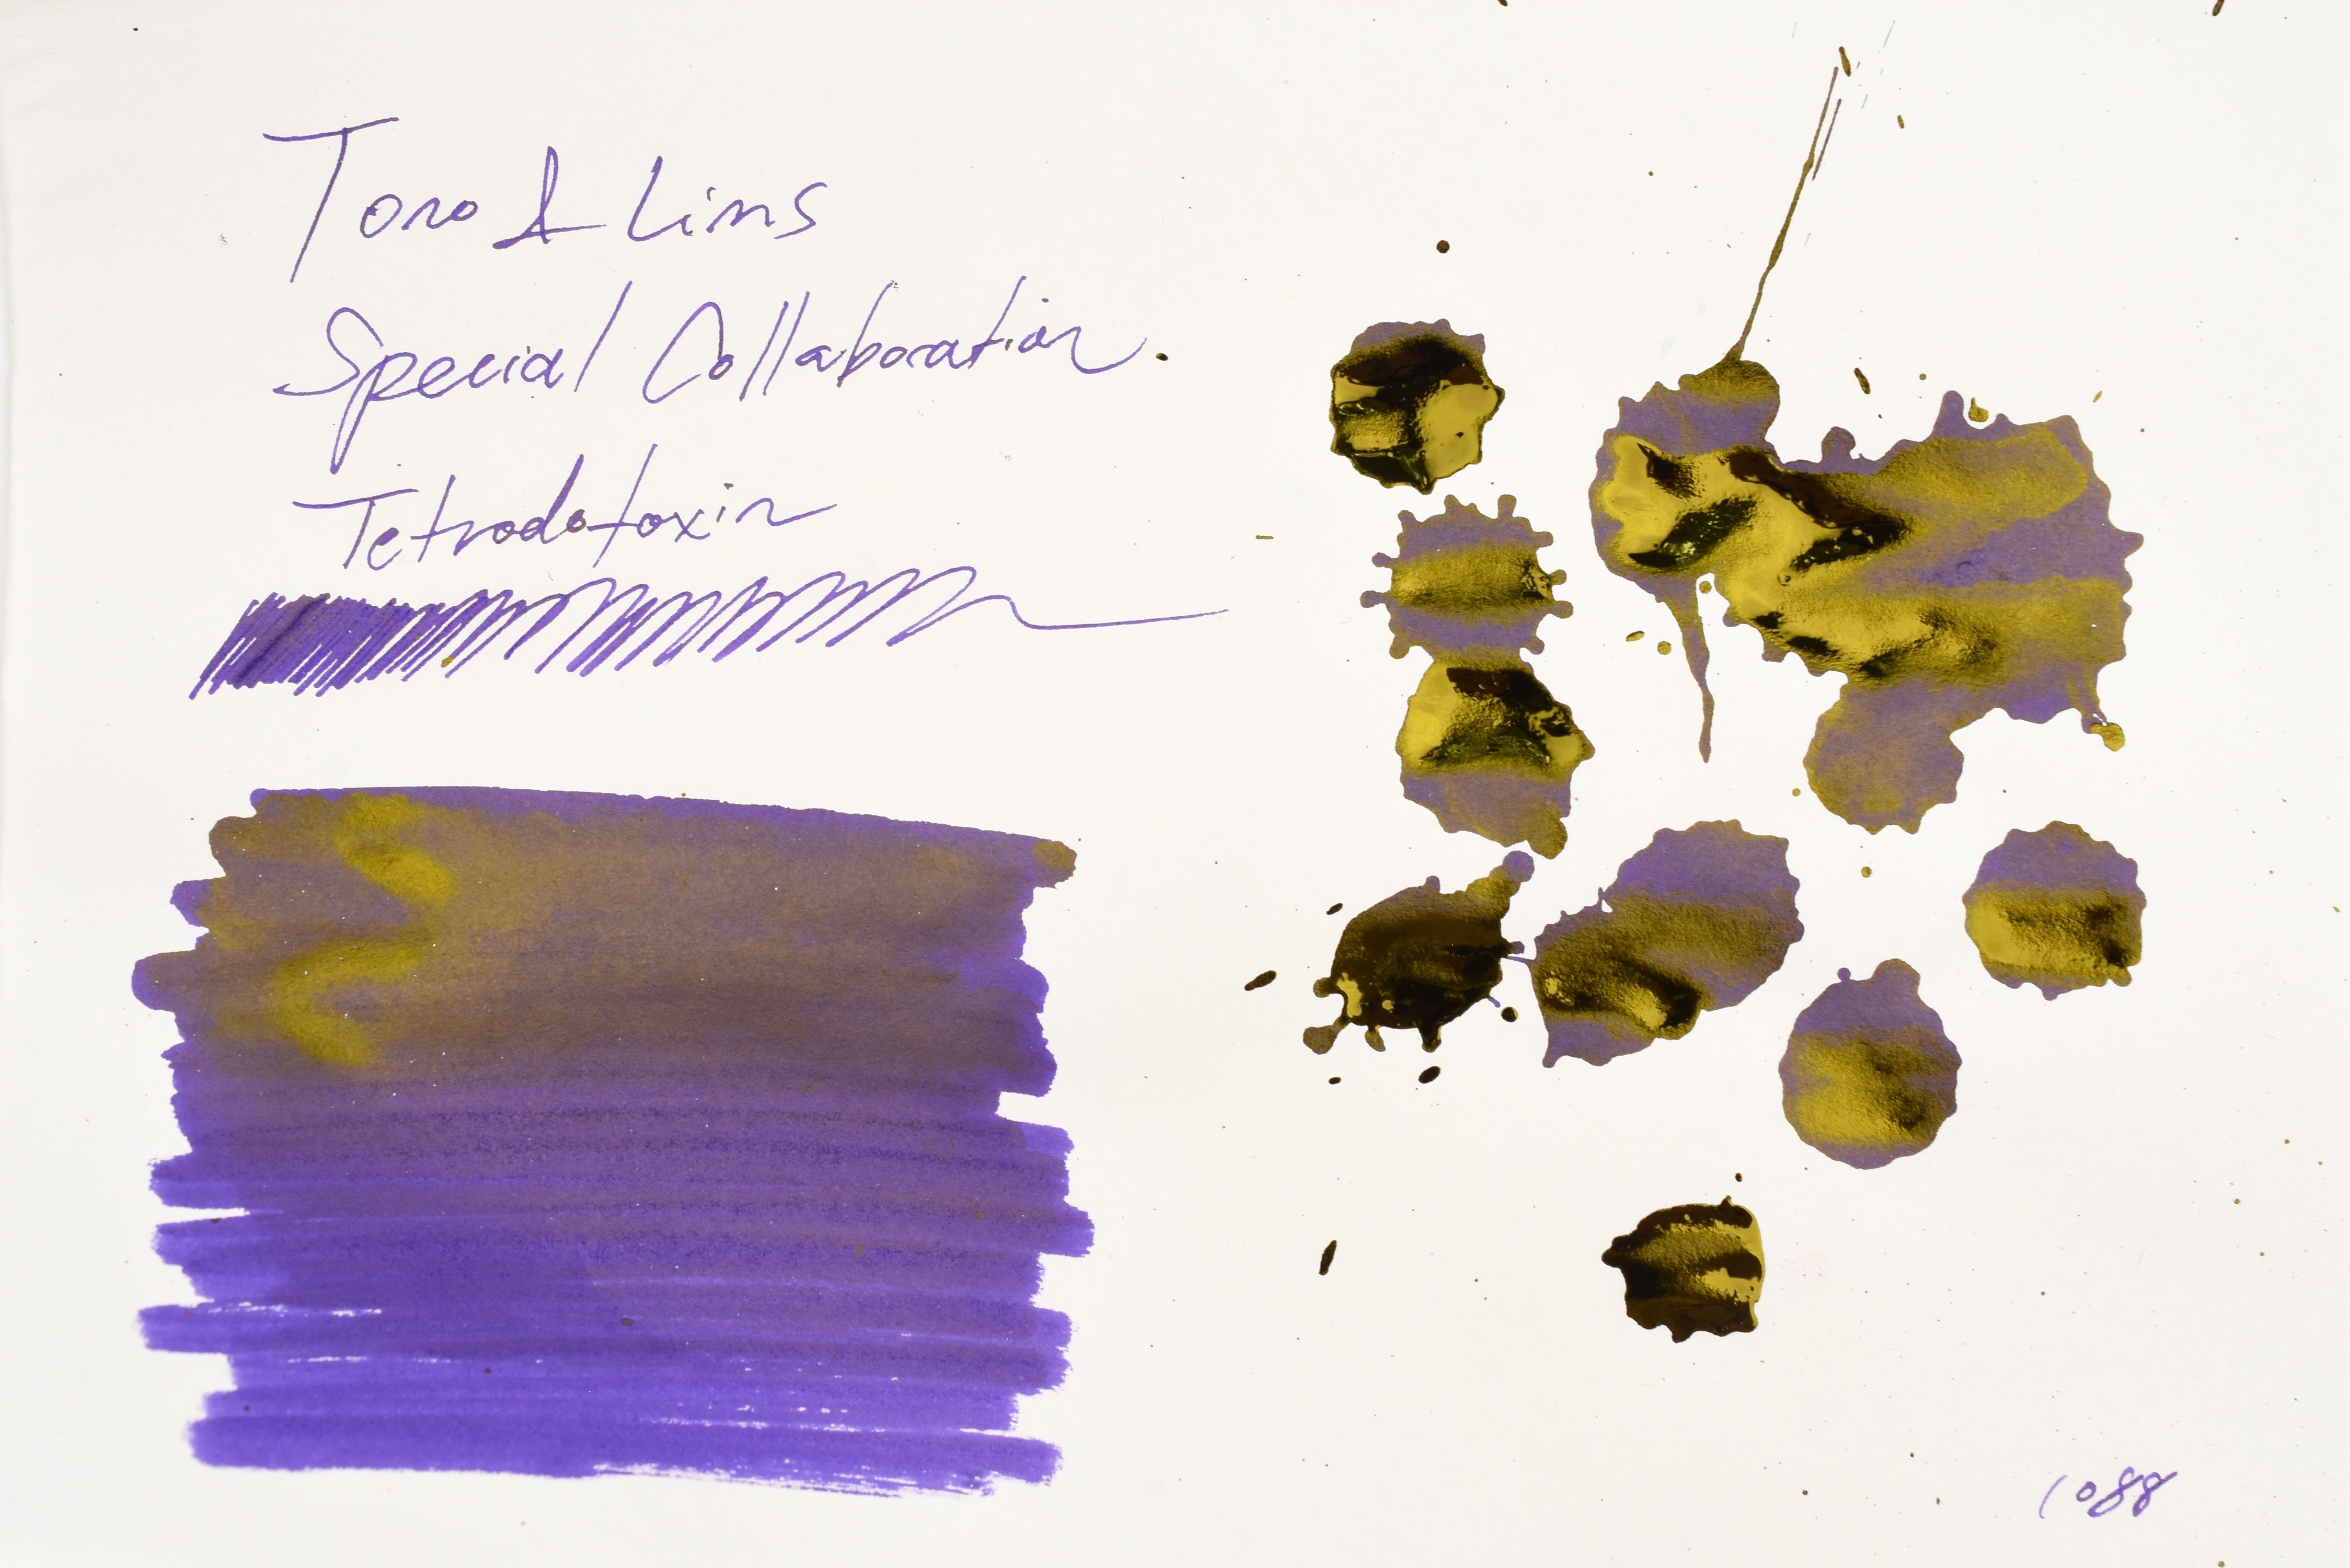 Tono & Lims
Special Collaboration.
Tetrodotoxin
1088